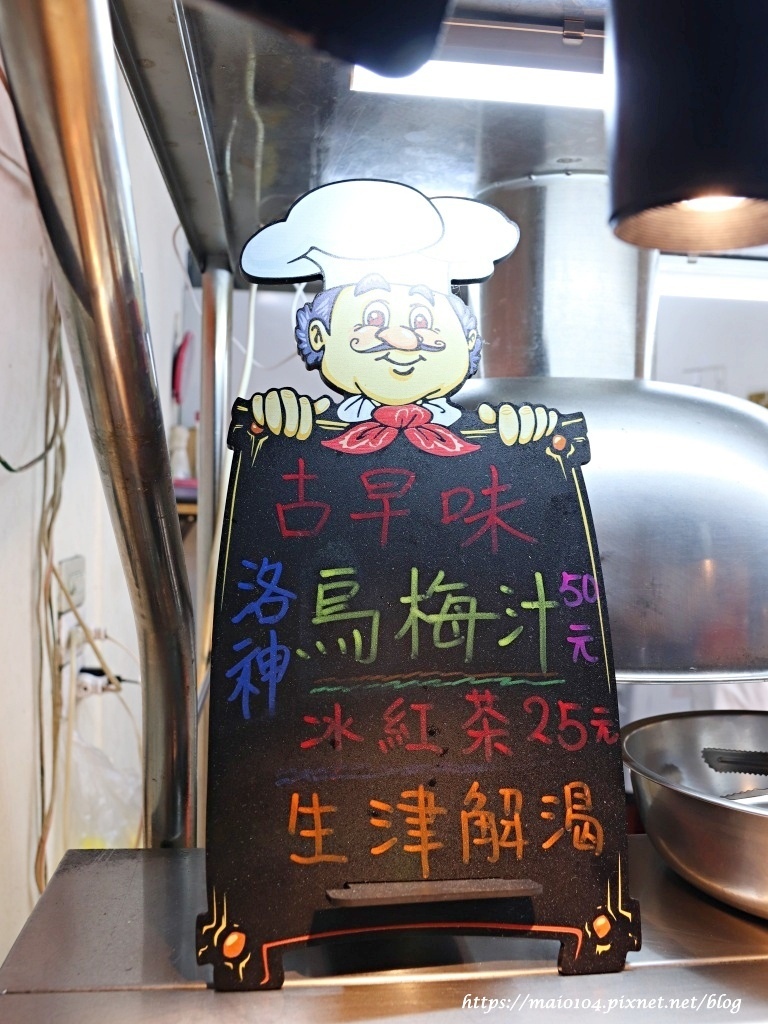 古早味
洛神烏梅汁50元
冰紅茶25元
生津解渴
https://maio104.pixnet.net/blog